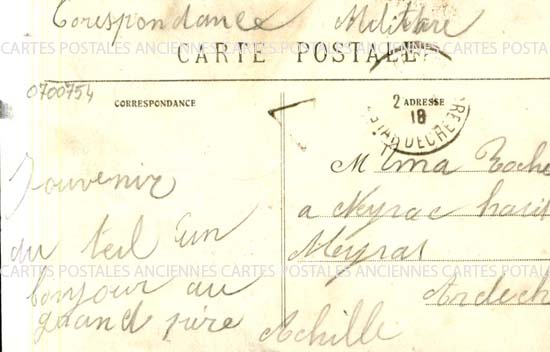 Corespondance Militare
CARTES POSTALES ANCIENNES CARTES POSTALES ANCIENNES CARTES POSTALES ANCIENNES
CARTE POSTALE
0700754
CORRESPONDANCE
2 ADRESSE
18
Souvenir
du teil Eun
bonjour au
grand pére
Achille
M Ema Roche
a Neyrac haut
Meyras
Ardech
CARTES POSTALES ANCIENNES CARTES POSTALES ANCIENNES CARTES POSTALES ANCIENNES